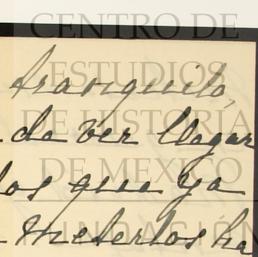 CENTRO DE
ESTUDIOS
DE HISTORIA
DE MEXICO
tranquilo,
da ver llegar
los que ya
meterlos ha